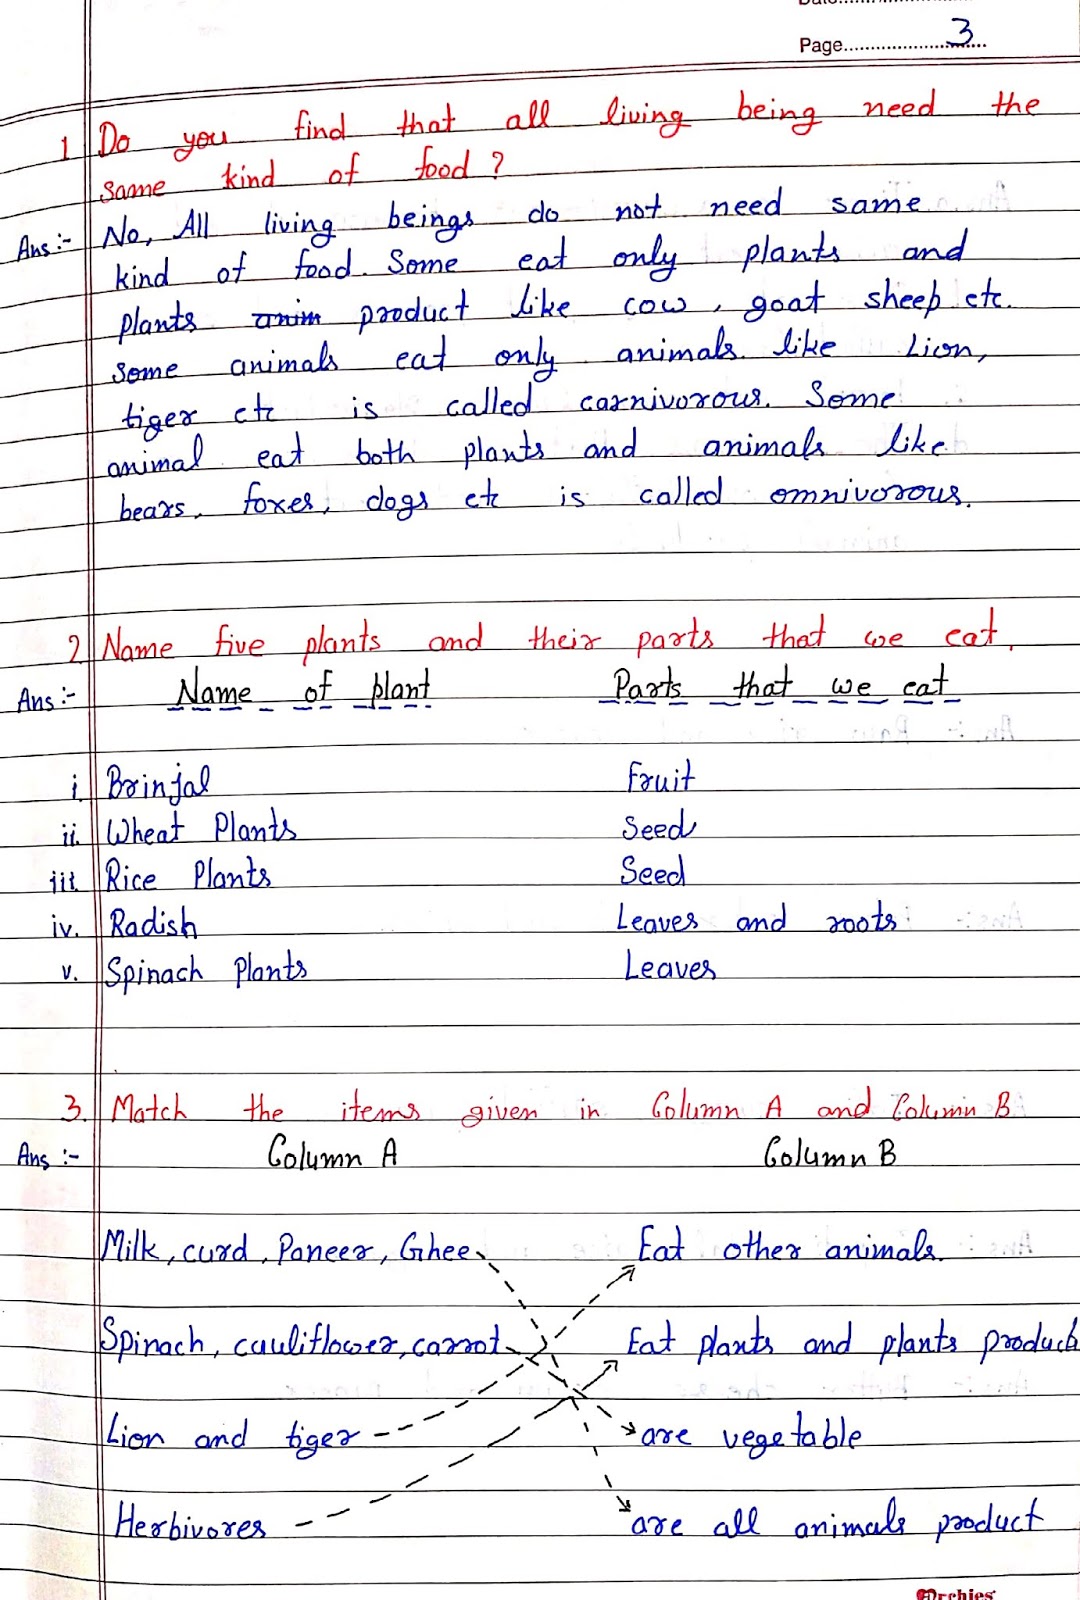 Date
Page 3
1 Do you find that all living being need the
same kind of food ?
Ans :- No, All living beings do not need same
kind of food. Some eat only plants and
plants anim product like cow, goat sheep etc.
some animals eat only animals like Lion,
tiger etc is called carnivorous. Some
animal eat both plants and animals like
bears, foxes, dogs etc is called omnivorous.
2 Name five plants and their parts that we eat.
Ans :- Name of plant Parts that we eat
i. Brinjal Fruit
ii. Wheat Plants Seed
iii Rice Plants Seed
iv. Radish Leaves and roots
v. Spinach Plants Leaves
3. Match the items given in Column A and Column B
Ans :- Column A Column B
Milk, curd, Paneer, Ghee Eat other animals.
Spinach, cauliflower, carrot Eat plants and plants product
Lion and tiger are vegetable
Herbivores are all animals product
Archies